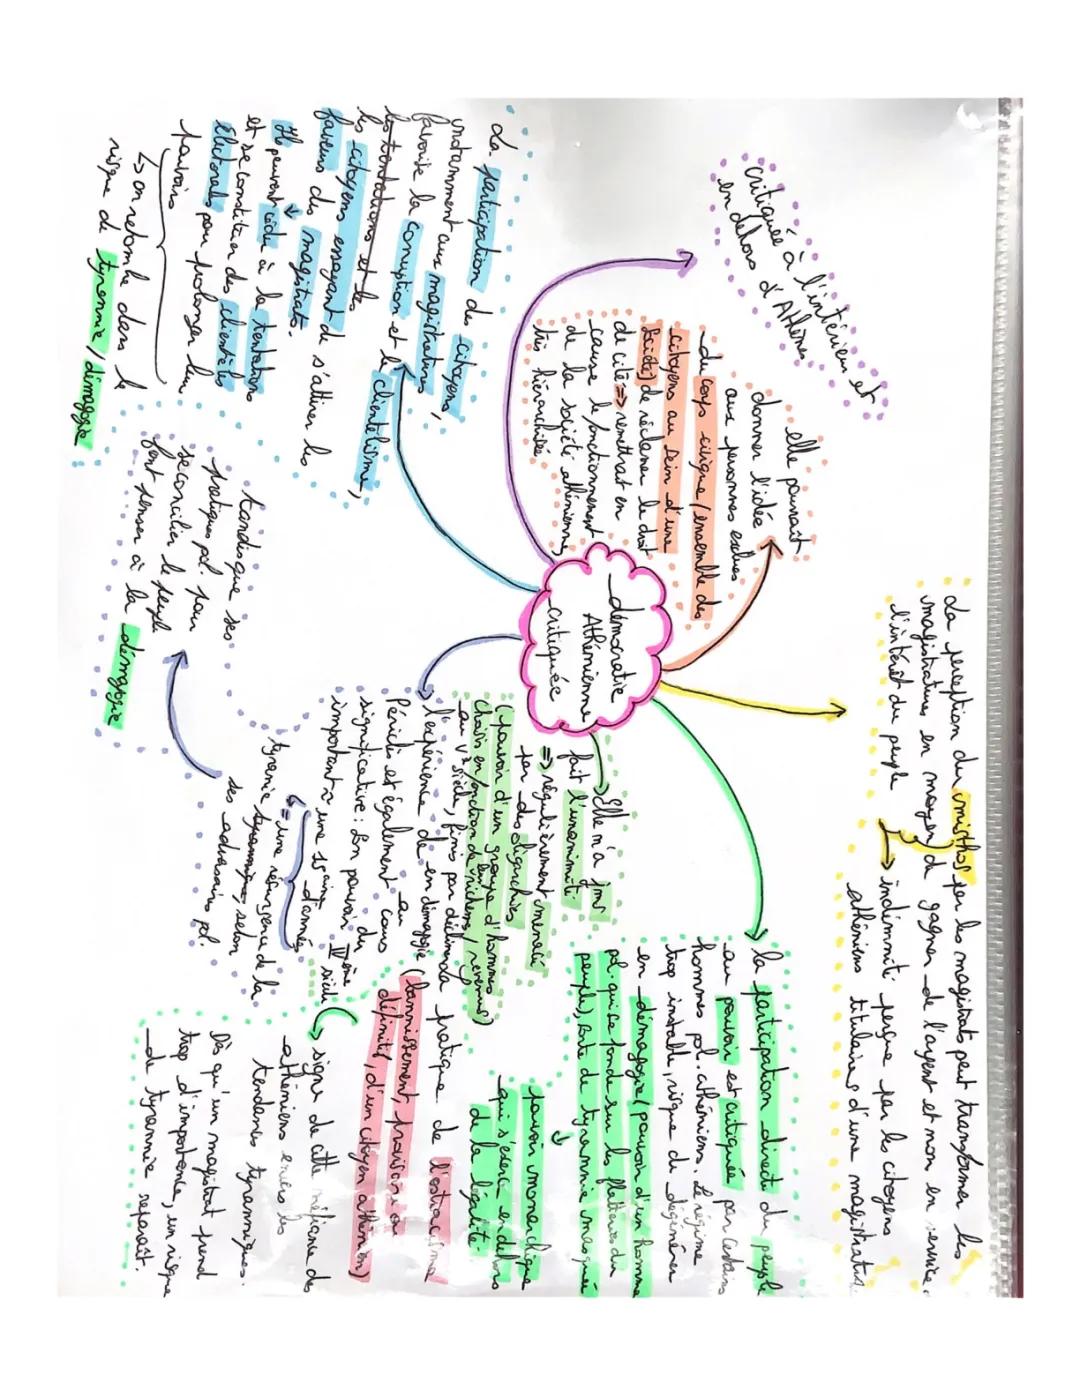 démocratie
Athénienne
critiquée
critiquée à l'intérieur et
en dehors d'Athènes
elle pourrait
donner l'idée
aux personnes exclues
du corps civique (ensemble des
citoyens au sein d'une
société) de réclamer le droit
de cité => remettrait en
cause le fonctionnement
de la société athénienne,
très hiérarchisée
La perception du misthos par les magistrats peut transformer les
magistratures en moyen de gagner de l'argent et non en service
l'intérêt du peuple
↳ indemnité perçue par les citoyens
athéniens titulaires d'une magistrature
la participation directe du peuple
au pouvoir est critiquée par certains
hommes pol. athéniens. Le régime
trop instable, risque de dégénérer
en démagogie (pouvoir d'un homme
pol. qui se fonde sur les flatteries du
peuple), sorte de tyrannie masquée
↓
pouvoir monarchique
qui s'exerce en dehors
de la légalité
Elle n'a jms
fait l'unanimité
=> régulièrement menacée
par des oligarchies
(pouvoir d'un groupe d'hommes
choisis en fonction de leurs richesses / revenus)
au Vè siècle, finis par
l'expérience de en démagogie
Périclès est également au
significative: son pouvoir du
important à une 15aine d'années
↳ = une résurgence de la
tyrannie, selon
ses adversaires pol.
tandis que ses
pratiques pol. pour
se concilier le peuple
font penser à la démagogie
la pratique de l'ostracisme
(bannissement, provisoire ou
définitif, d'un citoyen athénien)
cours
siècle
↳ signe de cette méfiance des
athéniens envers les
tendances tyranniques.
Dès qu'un magistrat prend
trop d'importance, un risque
de tyrannie reparaît.
La participation des citoyens,
notamment aux magistratures,
favorise la corruption et le clientélisme,
les tentations et les
les citoyens essayant de s'attirer les
faveurs des magistrats.
↓
Ils peuvent céder à la tentation
et se constituer des clientèles
électorales pour prolonger leur
pouvoirs
↳ on retombe dans le
risque de tyrannie / démagogie